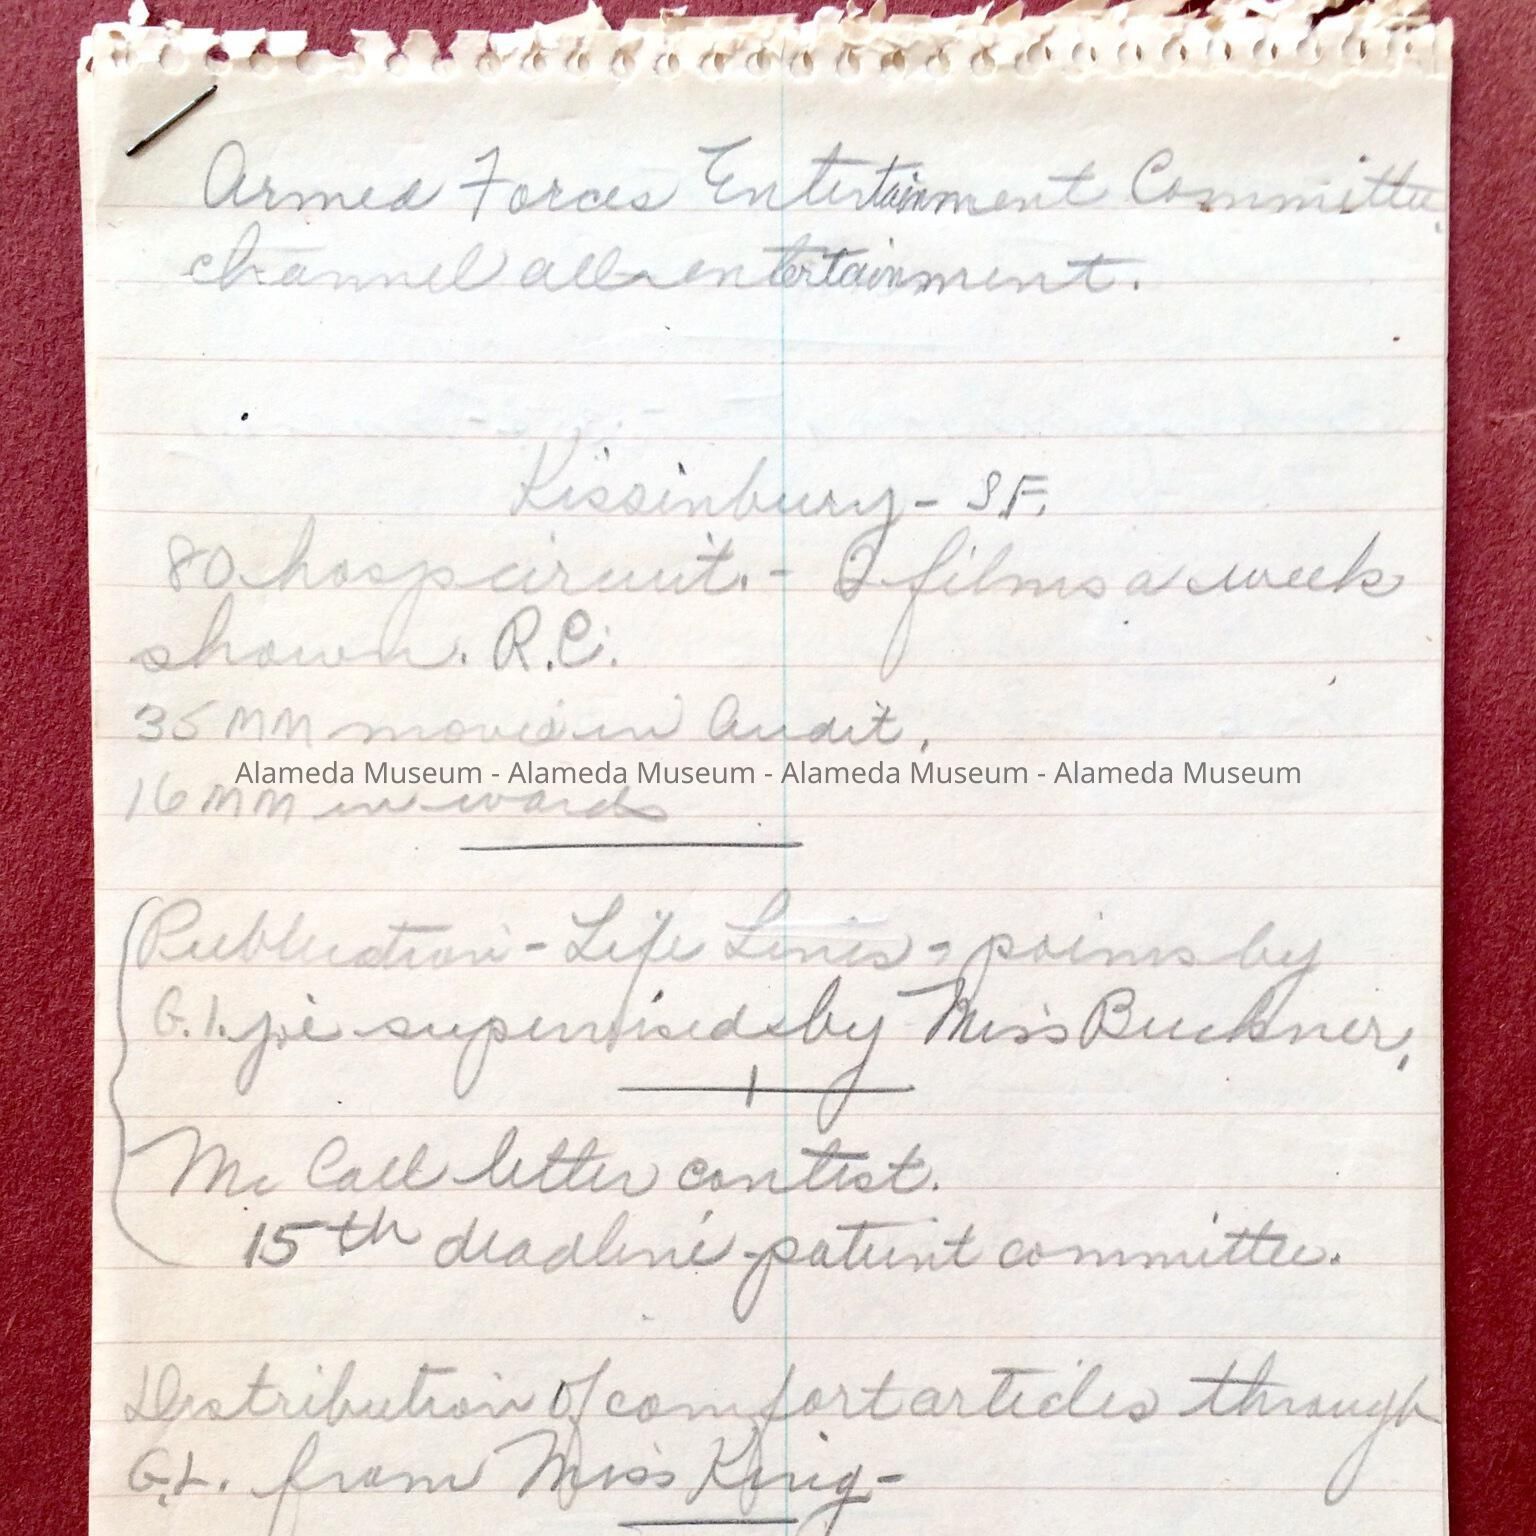 Armed Forces Entertainment Committee
channel all entertainment.
Kissinbury - S.F.
80 hosp circuit. - 2 films a week
shown. R.C.
35 MM movie in Audit.
Alameda Museum - Alameda Museum - Alameda Museum - Alameda Museum
16 MM in wards
Publication - Life Lines - poims by
G.I. joe supervised by Miss Buckner.
Mc Call letter contest.
15th deadline - patient committee.
Distribution of comfort articles through
G.L. from Miss King -